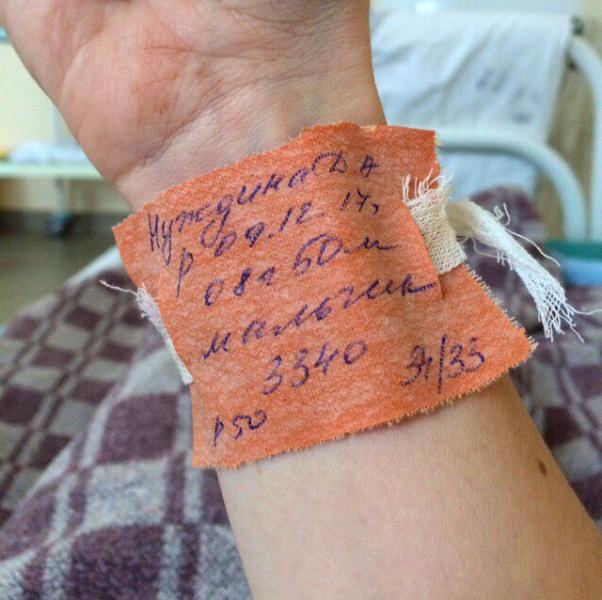 Нуждина Д А
р 09.12 14г
08ч 50м
мальчик
3340 Эч/33
р 50